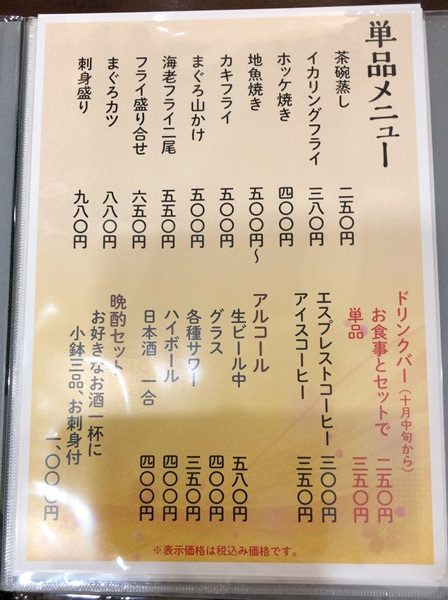 単品メニュー
茶碗蒸し 二五〇円
イカリングフライ 三八〇円
ホッケ焼き 四〇〇円
地魚焼き 五〇〇円～
カキフライ 五〇〇円
まぐろ山かけ 五〇〇円
海老フライ二尾 五五〇円
フライ盛り合せ 六五〇円
まぐろカツ 八八〇円
刺身盛り 九八〇円
ドリンクバー（十月中旬から）
お食事とセットで 二五〇円
単品 三五〇円
エスプレストコーヒー 三〇〇円
アイスコーヒー 三五〇円
アルコール
生ビール中 五八〇円
グラス 四〇〇円
各種サワー 三五〇円
ハイボール 四〇〇円
日本酒 一合 四〇〇円
晩酌セット
お好きなお酒一杯に
小鉢三品、お刺身付
一、〇〇〇円
※表示価格は税込み価格です。